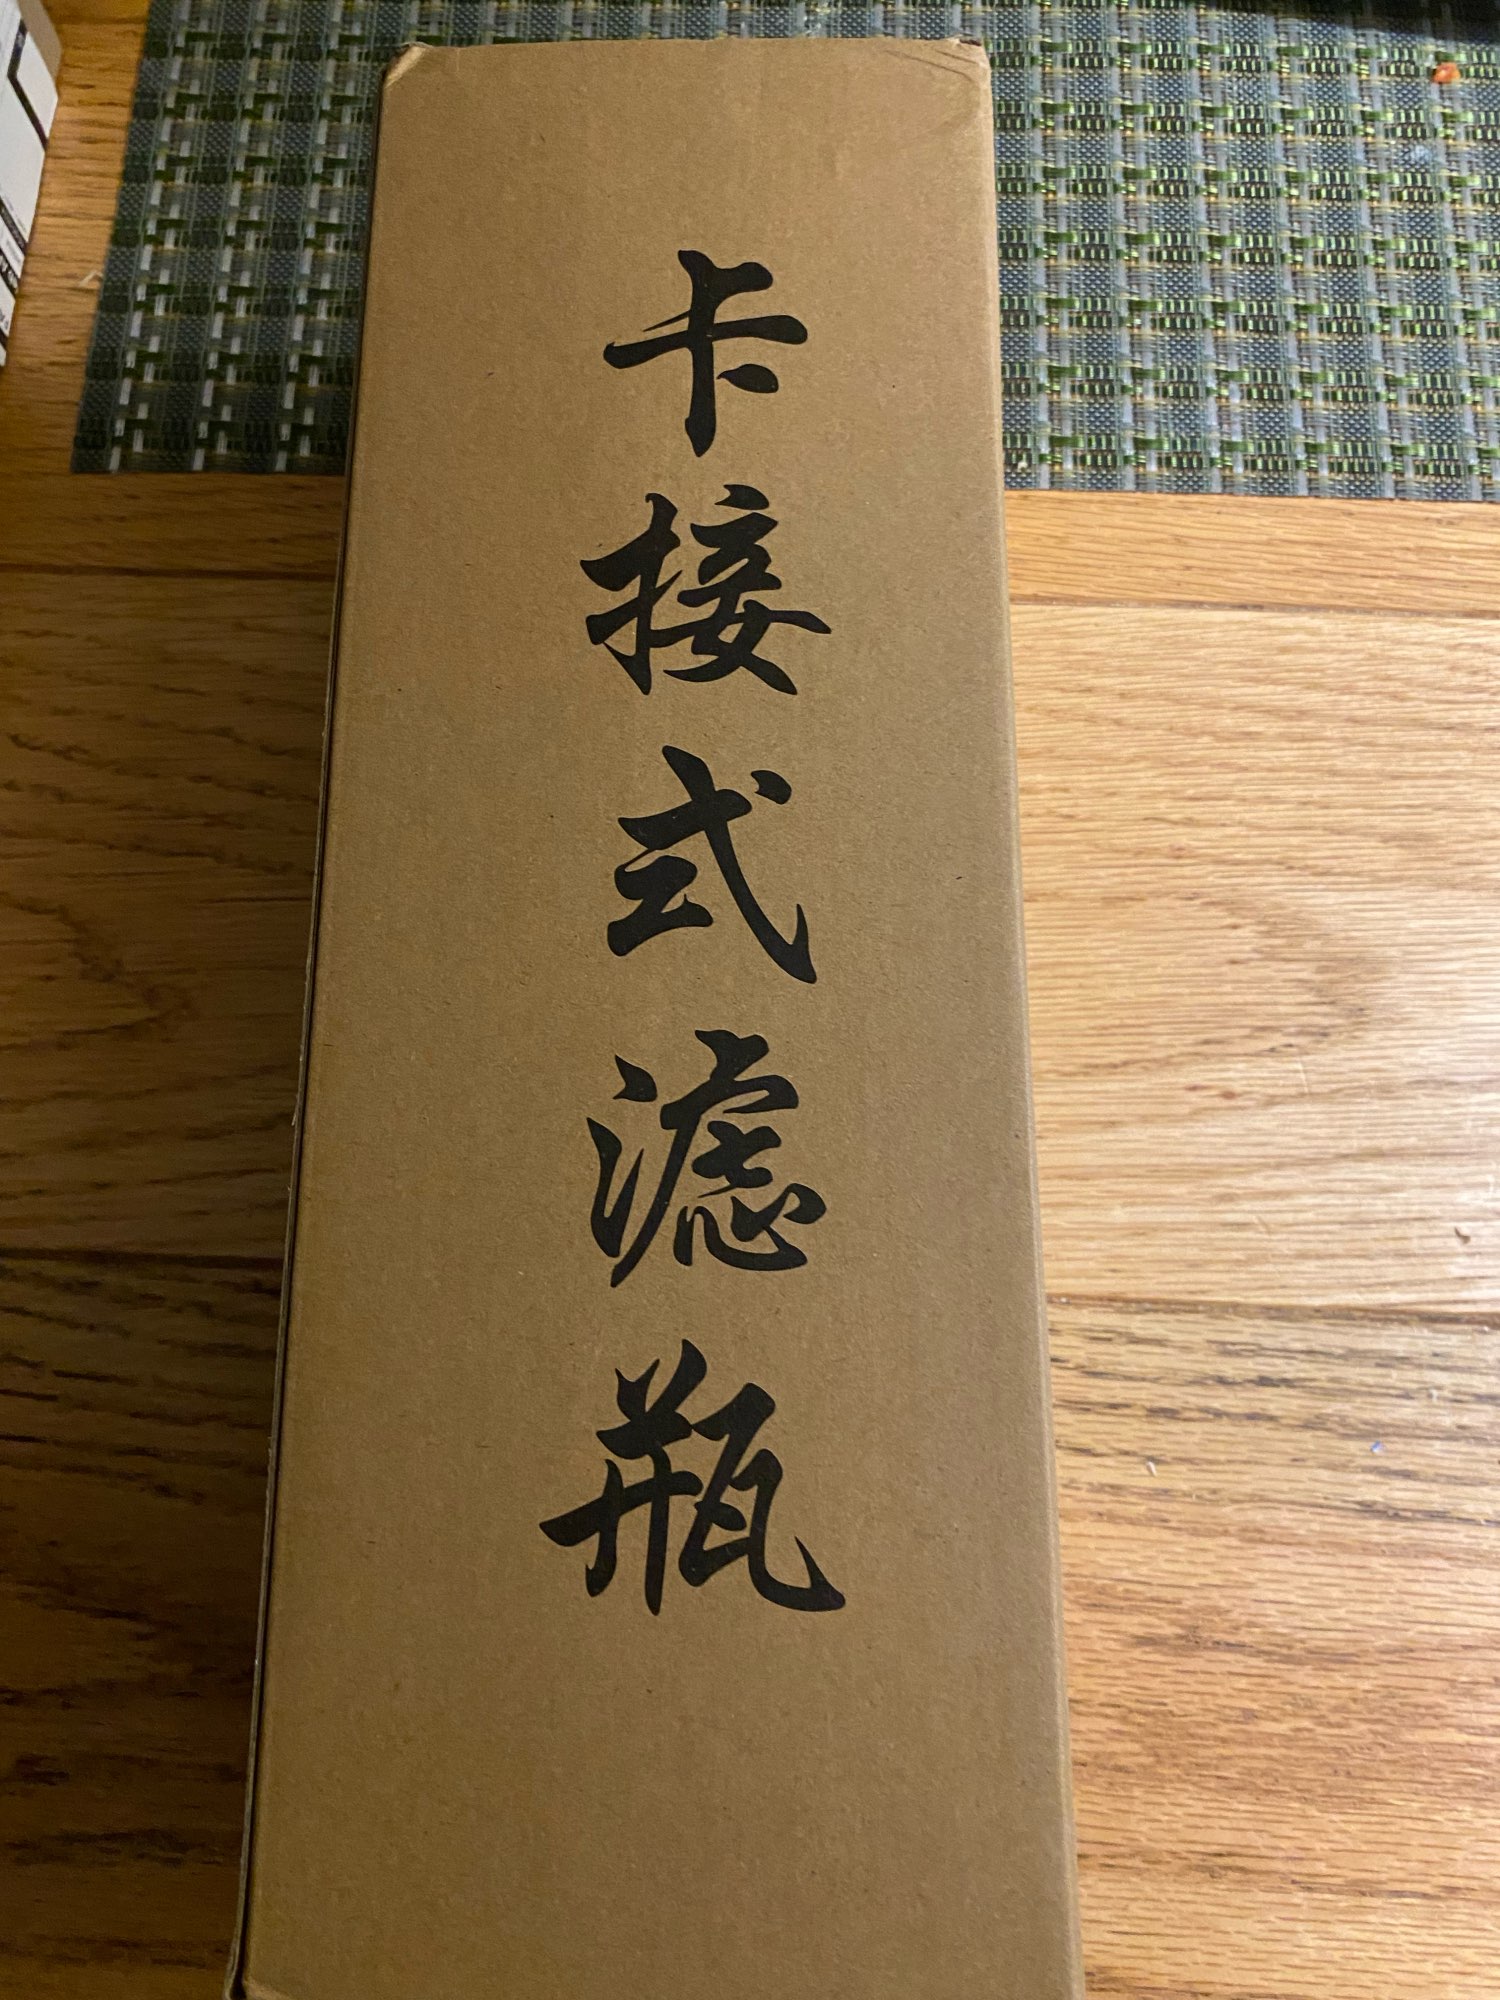 卡接式滤瓶